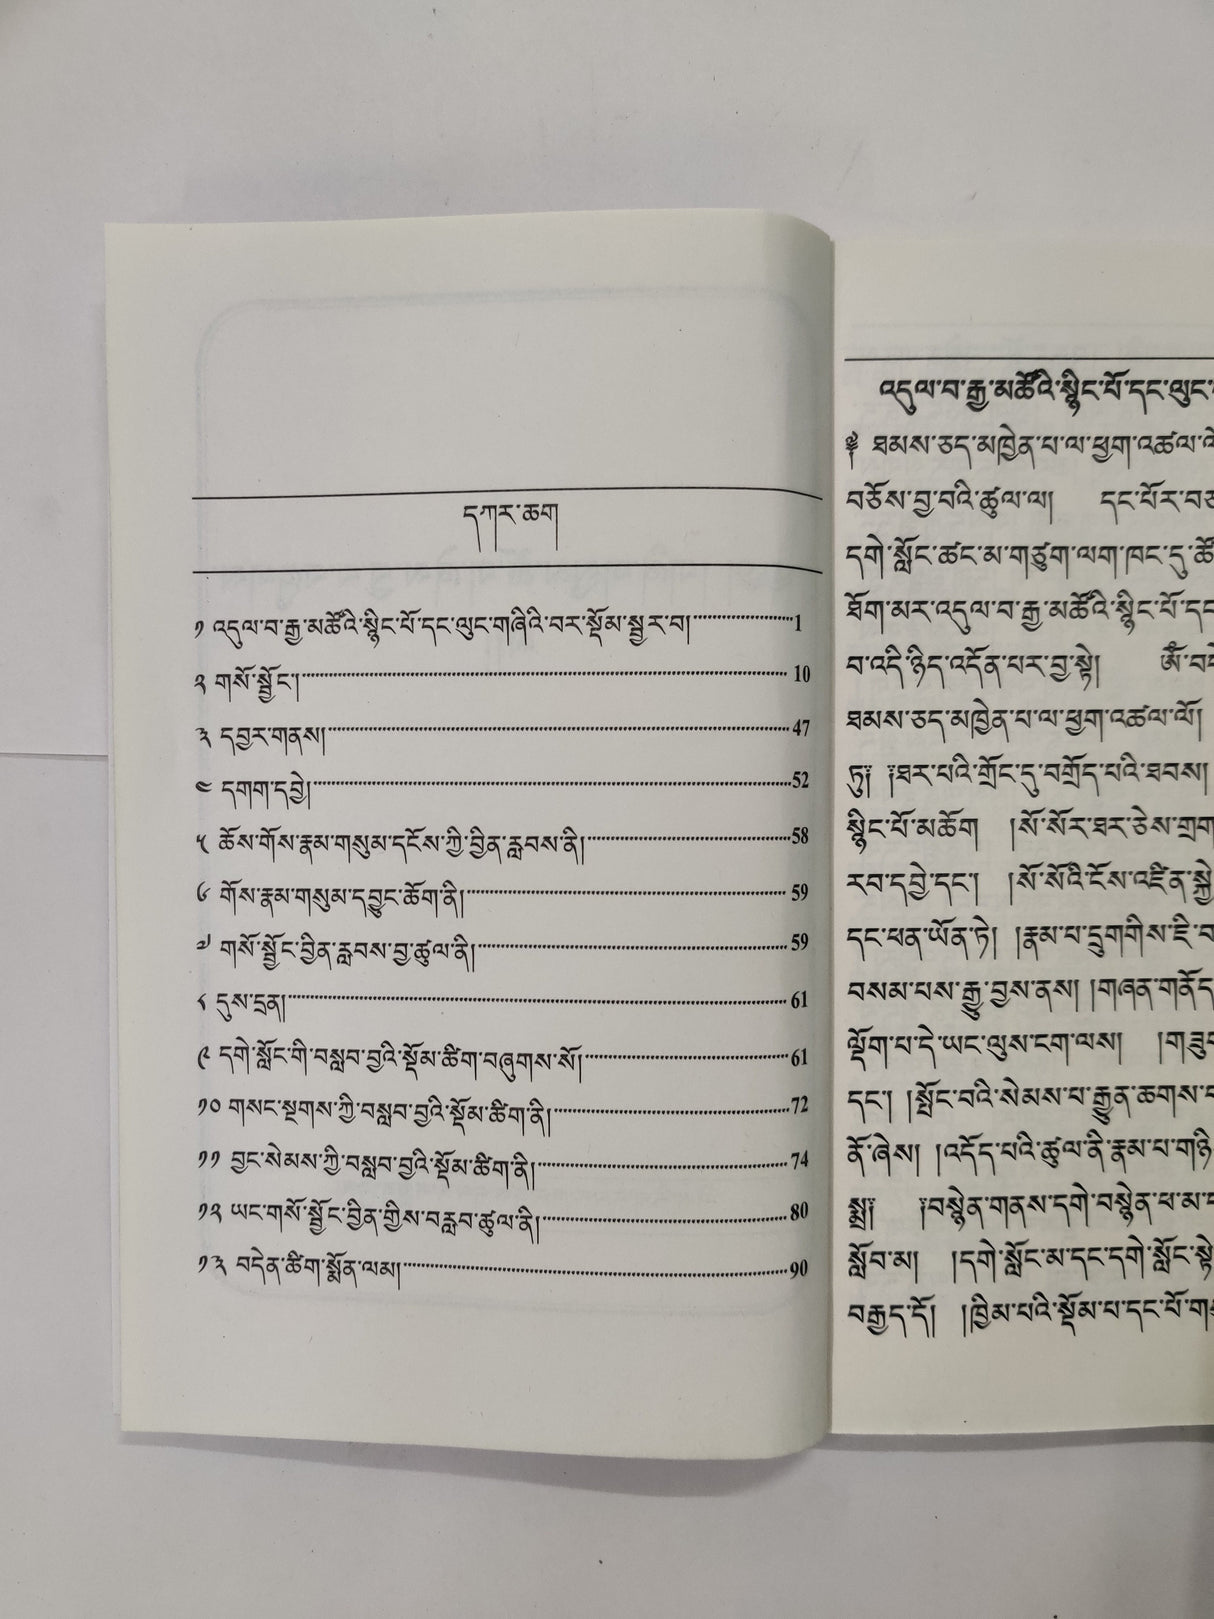 དཀར་ཆག
༡ འདུལ་བ་རྒྱ་མཚོའི་སྙིང་པོ་དང་ལུང་གཞིའི་བར་སྡོམ་སྦྱར་བ།་་་་་་་་་་་་1
༢ གསོ་སྦྱོང་།་་་་་་་་་་་་10
༣ དབྱར་གནས།་་་་་་་་་་་་47
༤ དགག་དབྱེ།་་་་་་་་་་་་52
༥ ཆོས་གོས་རྣམ་གསུམ་དངོས་ཀྱི་བྱིན་རླབས་ནི།་་་་་་་་་་་་58
༦ གོས་རྣམ་གསུམ་དབྱུང་ཆོག་ནི།་་་་་་་་་་་་59
༧ གསོ་སྦྱོང་བྱིན་རླབས་བྱ་ཚུལ་ནི།་་་་་་་་་་་་59
༨ དུས་དྲན།་་་་་་་་་་་་61
༩ དགེ་སློང་གི་བསླབ་བྱའི་སྡོམ་ཚིག་བཞུགས་སོ།་་་་་་་་་་་་61
༡༠ གསང་སྔགས་ཀྱི་བསླབ་བྱའི་སྡོམ་ཚིག་ནི།་་་་་་་་་་་་72
༡༡ བྱང་སེམས་ཀྱི་བསླབ་བྱའི་སྡོམ་ཚིག་ནི།་་་་་་་་་་་་74
༡༢ ཡང་གསོ་སྦྱོང་བྱིན་གྱིས་བརླབ་ཚུལ་ནི།་་་་་་་་་་་་80
༡༣ བདེན་ཚིག་སྨོན་ལམ།་་་་་་་་་་་་90
འདུལ་བ་རྒྱ་མཚོའི་སྙིང་པོ་དང་ལུང་
༈ ཐམས་ཅད་མཁྱེན་པ་ལ་ཕྱག་འཚལ་
བཅོས་བྱ་བའི་ཚུལ་ལ།  དང་པོར་
དགེ་སློང་ཚང་མ་གཙུག་ལག་ཁང་དུ་
ཐོག་མར་འདུལ་བ་རྒྱ་མཚོའི་སྙིང་པོ་
བ་འདི་ཉིད་འདོན་པར་བྱ་སྟེ།  ཨོཾ་
ཐམས་ཅད་མཁྱེན་པ་ལ་ཕྱག་འཚལ་ལོ།
ཏུ༔ ༔ཐར་པའི་གྲོང་དུ་བགྲོད་པའི་ཐབས།
སྙིང་པོ་མཆོག  །སོ་སོར་ཐར་ཅེས་
རབ་དབྱེ་དང་།  །སོ་སོའི་ངོས་འཛིན་
དང་ཕན་ཡོན་ཏེ། །རྣམ་པ་དྲུག་གིས་
བསམ་པས་རྒྱུ་བྱས་ནས། །གཞན་
ལྡོག་པ་དེ་ཡང་ལུས་ངག་ལས།
དང་། །སྤོང་བའི་སེམས་པ་རྒྱུན་ཆགས་
ནོ་ཞེས། །འདོད་པའི་ཚུལ་ནི་རྣམ་པ་
སྨྲ༔  ༔བསྙེན་གནས་དགེ་བསྙེན་ཕ་མ་
སློབ་མ།  །དགེ་སློང་མ་དང་དགེ་སློང་སྟེ
བརྒྱད་དོ།  །ཁྱིམ་པའི་སྡོམ་པ་དང་པོ་